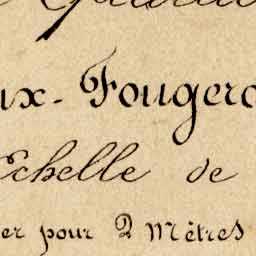 ux-Fougero
Echelle de
er pour 2 Mètres